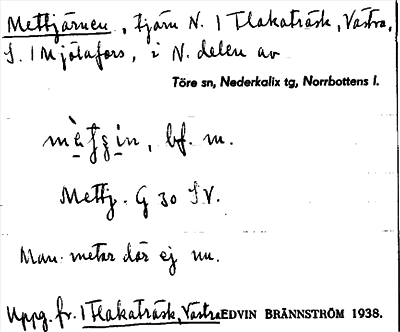 Mettjärnen, tjärn N. / Flakaträsk, Västra,
S. / Mjölafors, i N. delen av
Töre sn, Nederkalix tg, Norrbottens l.
bf. m.
Mettj. G 30 SV.
Man metar där ej nu.
Uppg. fr. / Flakaträsk, Västra EDVIN BRÄNNSTRÖM 1938.